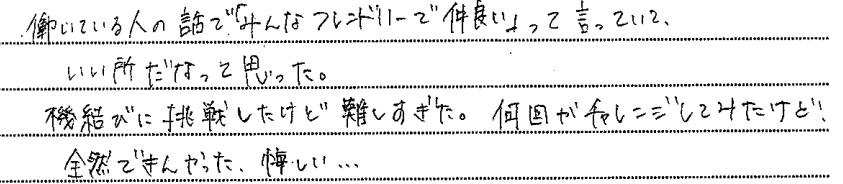 働いている人の話で「みんなフレンドリーで仲良い」って言っていて、
いい所だなって思った。
機結びに挑戦したけど難しすぎた。何回かチャレンジしてみたけど!
全然できんかった、悔しい…